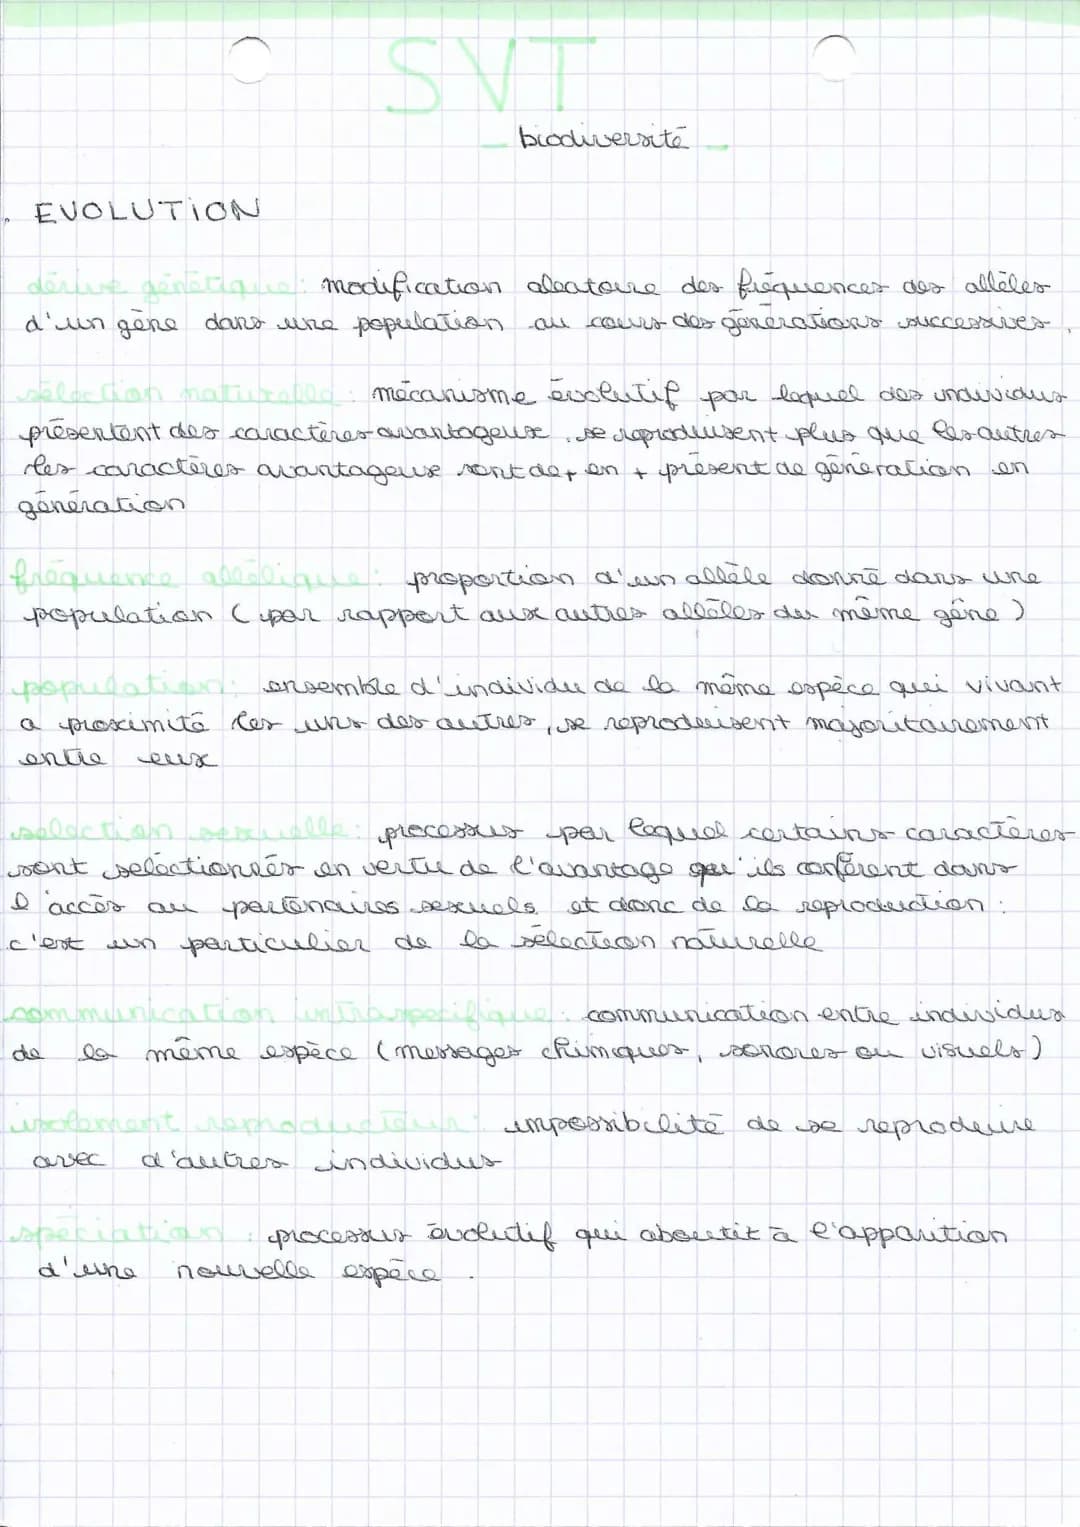 SVT
biodiversité
. EVOLUTION
dérive génétique : modification aleatoire des fréquences des allèles
d'un gène dans une population au cours des générations successives.
sélection naturelle : mécanisme évolutif par lequel des individus
présentent des caractères avantageux, se reproduisent plus que les autres
les caractères avantageux sont de + en + présent de génération en
génération
fréquence allélique : proportion d'un allèle donné dans une
population (par rapport aux autres allèles du même gène)
population : ensemble d'individu de la même espèce qui vivant
a proximité les uns des autres, se reproduisent majoritairement
entre eux
selection sexuelle : processus par lequel certains caractères
sont seléctionnés en vertu de l'avantage qu'ils confèrent dans
l'accès au partenaires sexuels et donc de la reproduction :
c'est un particulier de la sélection naturelle
communication intraspécifique : communication entre individus
de la même espèce (messages chimiques, sonores ou visuels)
isolement reproducteur : impossibilité de se reproduire
avec d'autres individus
spéciation : processus évolutif qui aboutit à l'apparition
d'une nouvelle espèce.